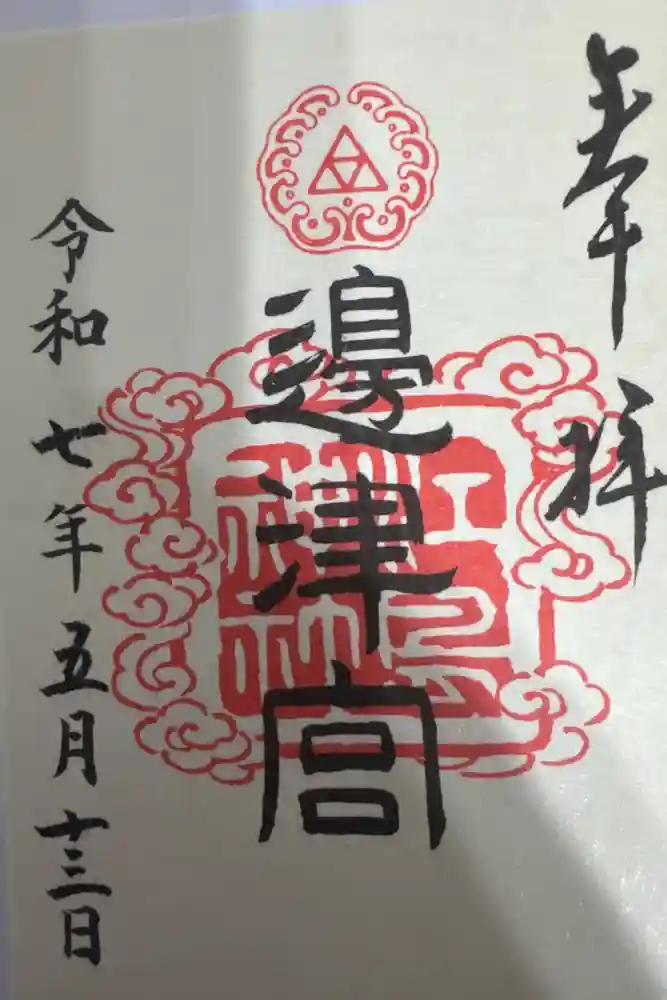 奉拝
邊津宮
令和七年五月十三日